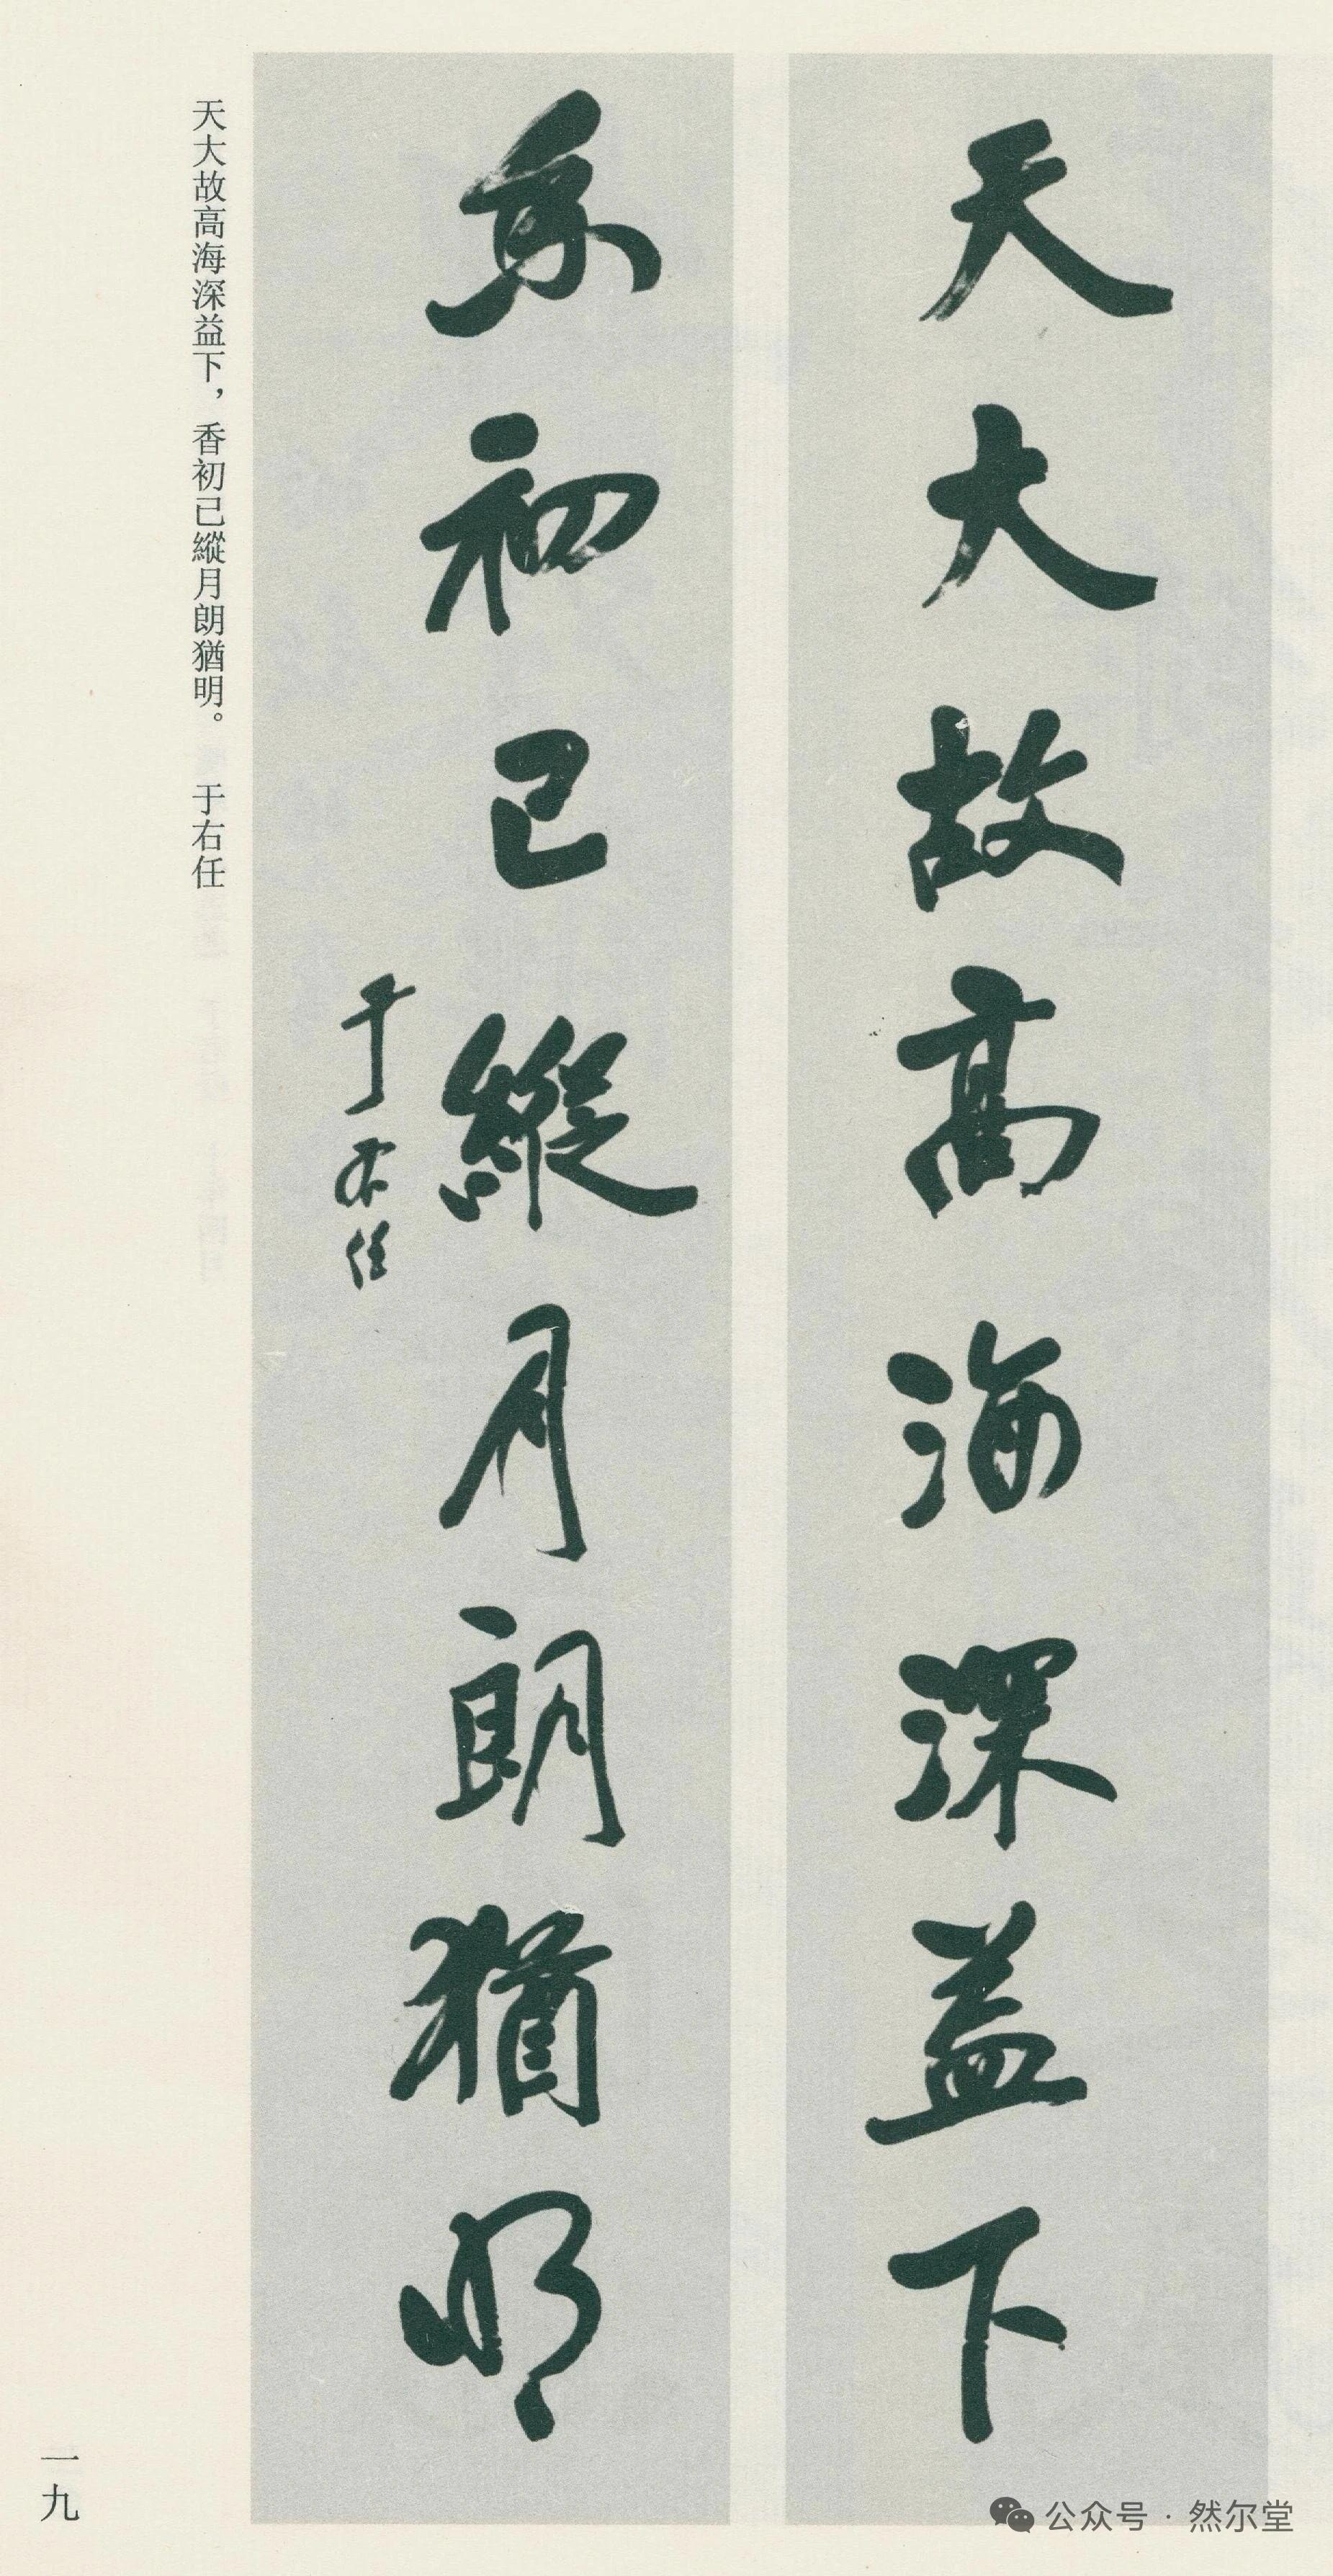 天大故高海深益下
香初已縱月朗猶明
于右任
天大故高海深益下，香初已縱月朗猶明。 于右任
一九
公众号 · 然尔堂